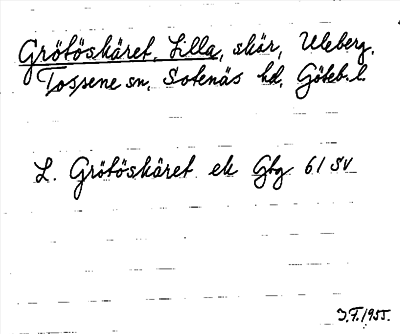 Grötöskäret, Lilla, skär, Uleberg,
Tossene sn, Sotenäs hd, Göteb. l.
L. Grötöskäret ek Gbg. 61 SV
J.F. 1955.